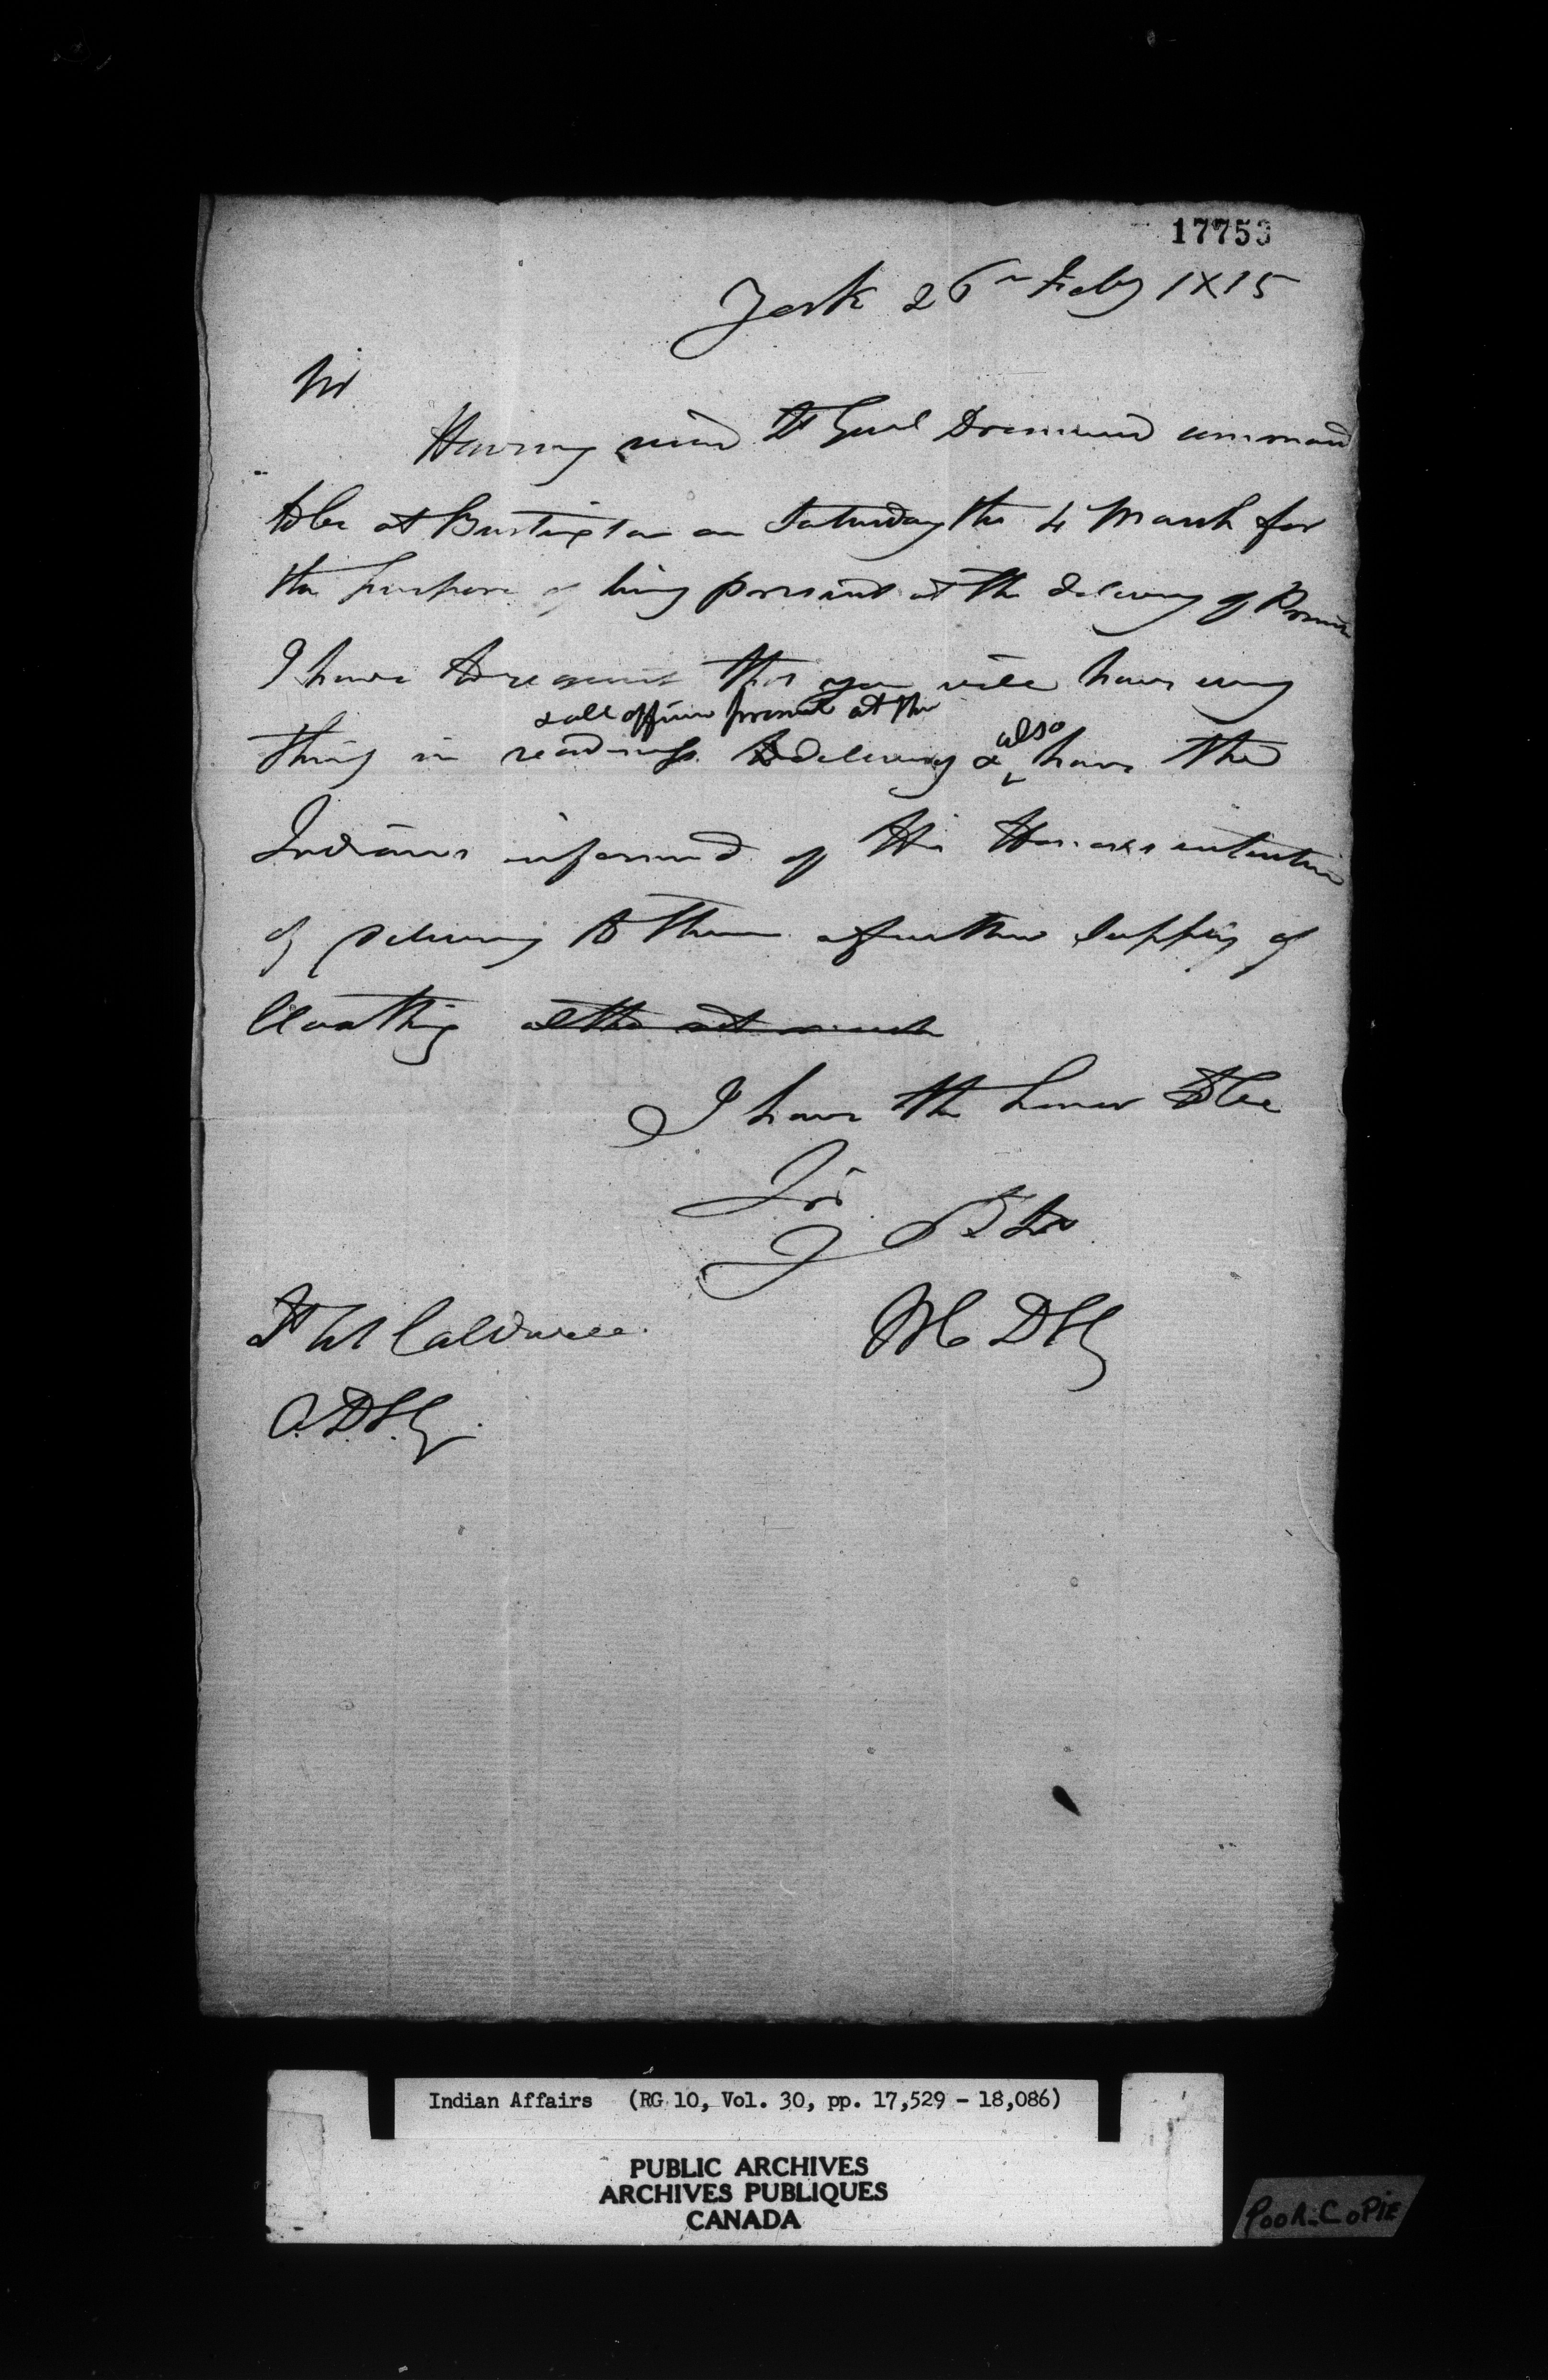 17753
York 26th Feby 1815
Sir
Having recd Lt Genl Drummond command
to be at Burlington on Saturday the 4 March for
the purpose of being present at the delivery of
I have to request that you will have every
& all officers present at the
thing in readiness delivery & also have the
Indians informed of His Honors intention
of delivering to them a further supply of
Cloathing altho not much
I have the honor to be
Sir
WC DSG
Lt Col Caldwell
A.D.S.G.
Indian Affairs (RG 10, Vol. 30, pp. 17,529 - 18,086)
PUBLIC ARCHIVES
ARCHIVES PUBLIQUES
CANADA
POOR-COPIE